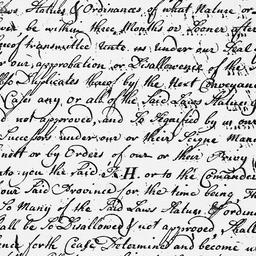 Laws, Statutes & Ordinances of what Nature or
ver be within three Months or Sooner after
y of transmitted unto us under our Seal
or our approbation or Disallowance of the
Also Duplicates thereof by the Next Conveyance
Cases any, or all of the Said Laws
not approved, and So Signified by us our
Successors under our or their Signe Man
inett or by Orders of our or their Privy C
nto you the said F. H. or to the Comander
our Said Province for the time being Th
So Many of the Said Laws Statues & ordin
Shall be So Disallowed & not approved, Shall
ence forth Cease Determine and become u